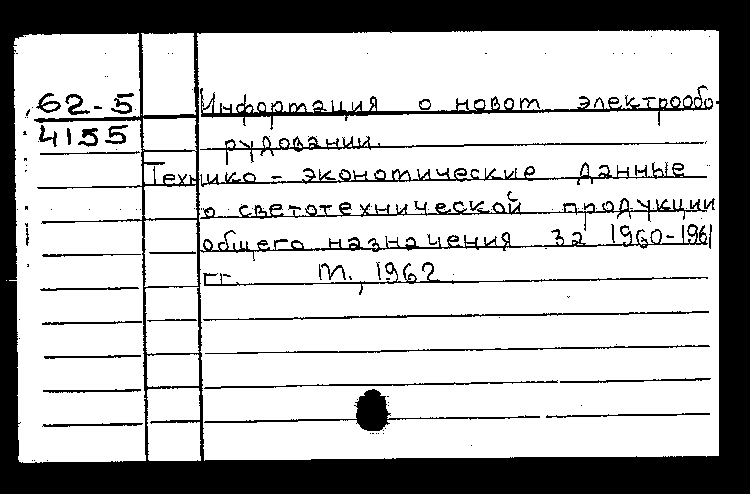 62-5
4155
Информация о новом электрообо-
рудовании.
Технико-экономические данные
о светотехнической продукции
общего назначения за 1960-1961
гг. М., 1962.